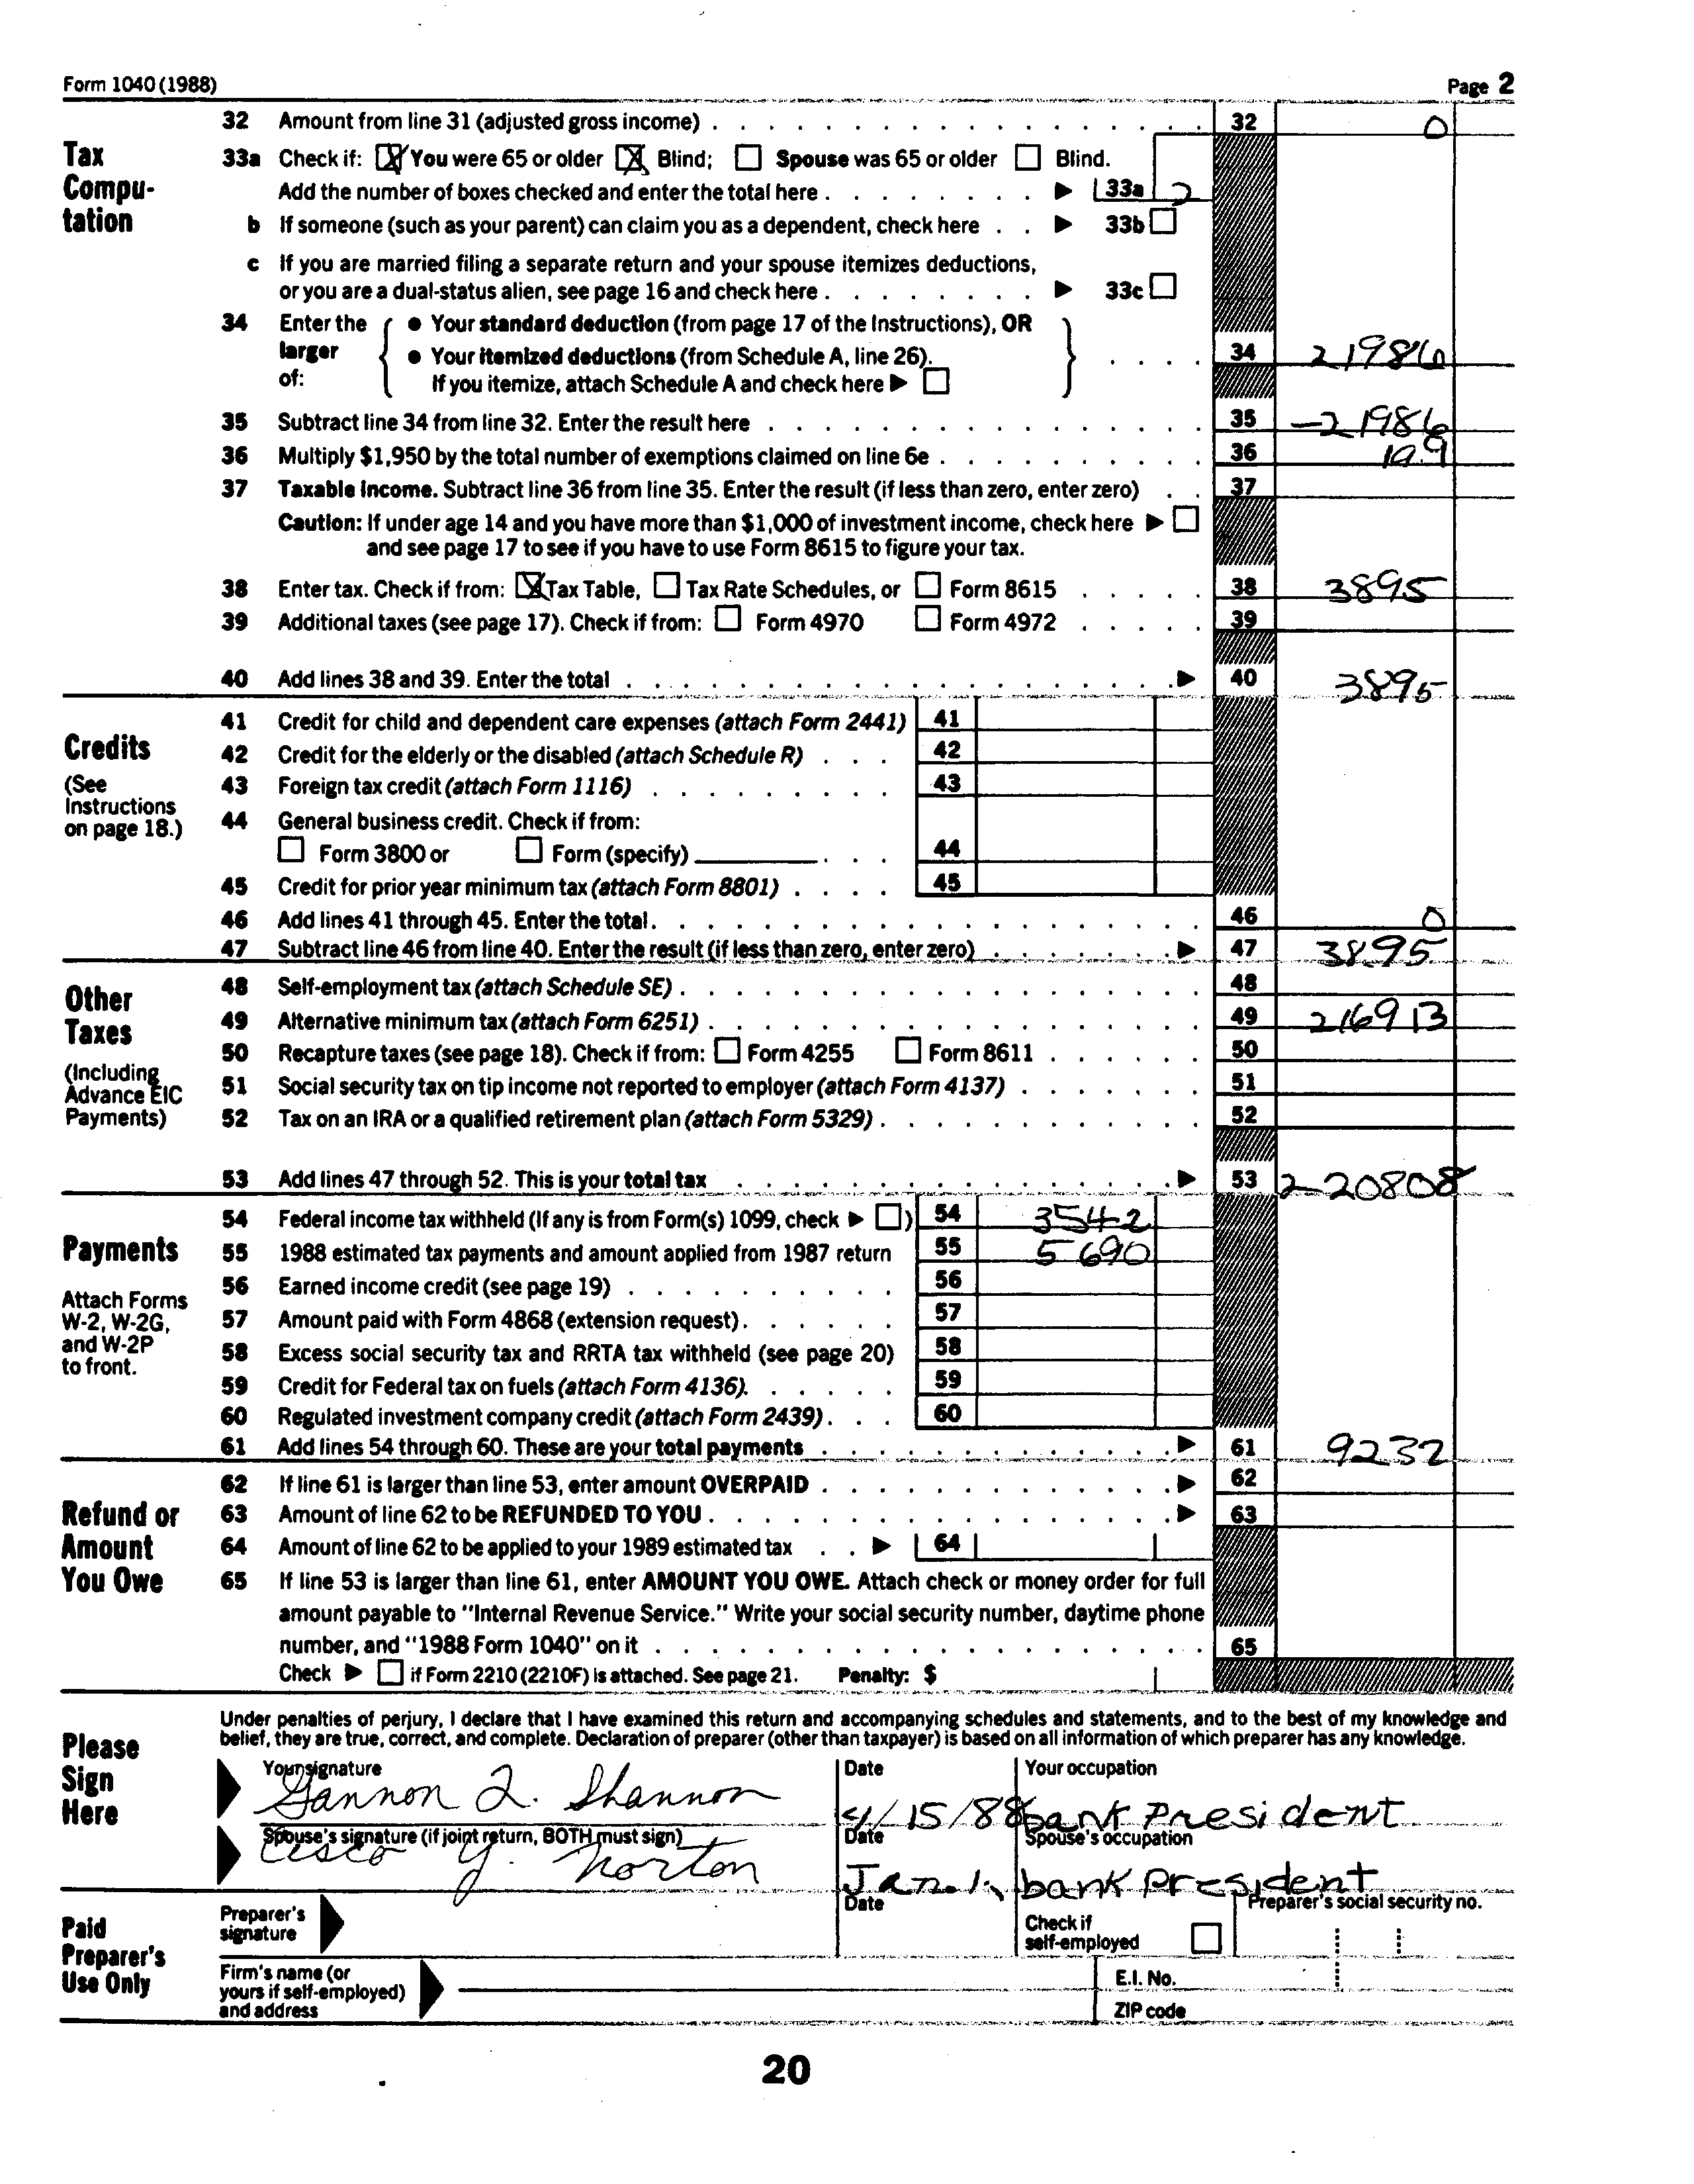 Form 1040 (1988) Page 2
Tax Compu-tation
32 Amount from line 31 (adjusted gross income) . . . 32 0
33a Check if: ☒ You were 65 or older ☒ Blind; ☐ Spouse was 65 or older ☐ Blind.
Add the number of boxes checked and enter the total here . . . ▶ 33a 2
b If someone (such as your parent) can claim you as a dependent, check here . . ▶ 33b ☐
c If you are married filing a separate return and your spouse itemizes deductions,
or you are a dual-status alien, see page 16 and check here . . . ▶ 33c ☐
34 Enter the larger of: { ● Your standard deduction (from page 17 of the Instructions), OR
● Your itemized deductions (from Schedule A, line 26). } . . . . 34 21986
If you itemize, attach Schedule A and check here ▶ ☐
35 Subtract line 34 from line 32. Enter the result here . . . 35 -21986
36 Multiply $1,950 by the total number of exemptions claimed on line 6e . . . 36
37 Taxable income. Subtract line 36 from line 35. Enter the result (if less than zero, enter zero) . . 37
Caution: If under age 14 and you have more than $1,000 of investment income, check here ▶ ☐
and see page 17 to see if you have to use Form 8615 to figure your tax.
38 Enter tax. Check if from: ☒ Tax Table, ☐ Tax Rate Schedules, or ☐ Form 8615 . . . 38 3895
39 Additional taxes (see page 17). Check if from: ☐ Form 4970 ☐ Form 4972 . . . 39
40 Add lines 38 and 39. Enter the total . . . ▶ 40 3895
Credits
(See Instructions on page 18.)
41 Credit for child and dependent care expenses (attach Form 2441) 41
42 Credit for the elderly or the disabled (attach Schedule R) . . . 42
43 Foreign tax credit (attach Form 1116) . . . 43
44 General business credit. Check if from:
☐ Form 3800 or ☐ Form (specify) . . . 44
45 Credit for prior year minimum tax (attach Form 8801) . . . . 45
46 Add lines 41 through 45. Enter the total . . . 46 0
47 Subtract line 46 from line 40. Enter the result (if less than zero, enter zero) . . . ▶ 47 3895
Other Taxes
(Including Advance EIC Payments)
48 Self-employment tax (attach Schedule SE) . . . 48
49 Alternative minimum tax (attach Form 6251) . . . 49 216913
50 Recapture taxes (see page 18). Check if from: ☐ Form 4255 ☐ Form 8611 . . . 50
51 Social security tax on tip income not reported to employer (attach Form 4137) . . . 51
52 Tax on an IRA or a qualified retirement plan (attach Form 5329) . . . 52
53 Add lines 47 through 52. This is your total tax . . . ▶ 53 220808
Payments
Attach Forms W-2, W-2G, and W-2P to front.
54 Federal income tax withheld (If any is from Form(s) 1099, check ▶ ☐) 54 3542
55 1988 estimated tax payments and amount applied from 1987 return 55 5690
56 Earned income credit (see page 19) . . . 56
57 Amount paid with Form 4868 (extension request) . . . 57
58 Excess social security tax and RRTA tax withheld (see page 20) 58
59 Credit for Federal tax on fuels (attach Form 4136). . . . 59
60 Regulated investment company credit (attach Form 2439) . . . 60
61 Add lines 54 through 60. These are your total payments . . . ▶ 61 9232
Refund or Amount You Owe
62 If line 61 is larger than line 53, enter amount OVERPAID . . . ▶ 62
63 Amount of line 62 to be REFUNDED TO YOU . . . ▶ 63
64 Amount of line 62 to be applied to your 1989 estimated tax . . ▶ 64
65 If line 53 is larger than line 61, enter AMOUNT YOU OWE. Attach check or money order for full
amount payable to "Internal Revenue Service." Write your social security number, daytime phone
number, and "1988 Form 1040" on it . . . 65
Check ▶ ☐ if Form 2210 (2210F) is attached. See page 21. Penalty: $
Please Sign Here
Under penalties of perjury, I declare that I have examined this return and accompanying schedules and statements, and to the best of my knowledge and
belief, they are true, correct, and complete. Declaration of preparer (other than taxpayer) is based on all information of which preparer has any knowledge.
Your signature Date Your occupation
Gannon Q. Shannon 4/15/88 bank President
Spouse's signature (if joint return, BOTH must sign) Date Spouse's occupation
Cisco Y. Norton Jan. bank president
Paid Preparer's Use Only
Preparer's signature Date Check if self-employed ☐ Preparer's social security no.
Firm's name (or yours if self-employed) and address E.I. No.
ZIP code
20